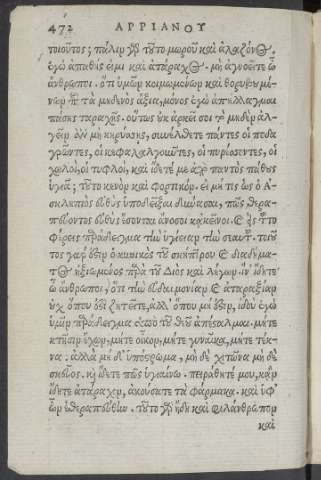 472 ΑΡΡΙΑΝΟΥ
τοιοῦτος; πάλιν γὰρ τοῦτο μωροῦ καὶ ἀλαζόνος.
ἐγὼ ἀπαθής εἰμι καὶ ἀτάραχος. μὴ ἀγνοεῖτε ὦ
ἄνθρωποι. ὅτι ὑμῶν κοιμωμένων καὶ θορυβουμέ-
νων περὶ τὰ μηδενὸς ἄξια, μόνος ἐγὼ ἀπήλλαγμαι
πάσης ταραχῆς. οὕτως οὐκ ἀρκεῖ σοι τὸ μηδὲν ἀλ-
γεῖν ἂν μὴ κηρύσσῃς, συνέλθετε πάντες οἱ ποδα-
γρῶντες, οἱ κεφαλαλγοῦντες, οἱ πυρέσσοντες, οἱ
χωλοὶ, οἱ τυφλοὶ, καὶ ἴδετέ με ἀπὸ παντὸς πάθους
ὑγιᾶ; τοῦτο κενὸν καὶ φορτικόν. εἰ μή τις ὡς ὁ Ἀ-
σκληπιὸς εὐθὺς ὑποδεῖξαι δύνασαι, πῶς θερα-
πεύοντες εὐθὺς ἔσονται ἄνοσοι κἀκεῖνοι. καὶ εἰς τοῦτο
φέρεις παράδειγμα τὴν ὑγείαν τὴν σεαυτοῦ. τοιοῦ-
τος γάρ ἐστιν ὁ κυνικὸς τοῦ σκήπτρου καὶ διαδήμα-
τος ἠξιωμένος παρὰ τοῦ Διὸς καὶ λέγων. ἵν' ἴδητε
ὦ ἄνθρωποι, ὅτι τὴν εὐδαιμονίαν καὶ ἀταραξίαν
οὐχ ὅπου ἐστὶ ζητεῖτε, ἀλλ' ὅπου μή ἐστιν, ἰδοὺ ἐγὼ
ὑμῖν παράδειγμα ὑπὸ τοῦ θεοῦ ἀπέσταλμαι. μήτε
κτῆσιν ἔχων, μήτε οἶκον, μήτε γυναῖκα, μήτε τέκ-
να. ἀλλὰ μηδ' ὑπόστρωμα, μηδὲ χιτῶνα μηδὲ
σκεῦος. καὶ ἴδετε πῶς ὑγιαίνω. πειράθητέ μου, κἂν
ἴδητε ἀτάραχον, ἀκούσατε τὰ φάρμακα. καὶ ὑφ'
ὧν ἐθεραπεύθην. τοῦτο γὰρ ἤδη καὶ φιλάνθρωπον
καὶ